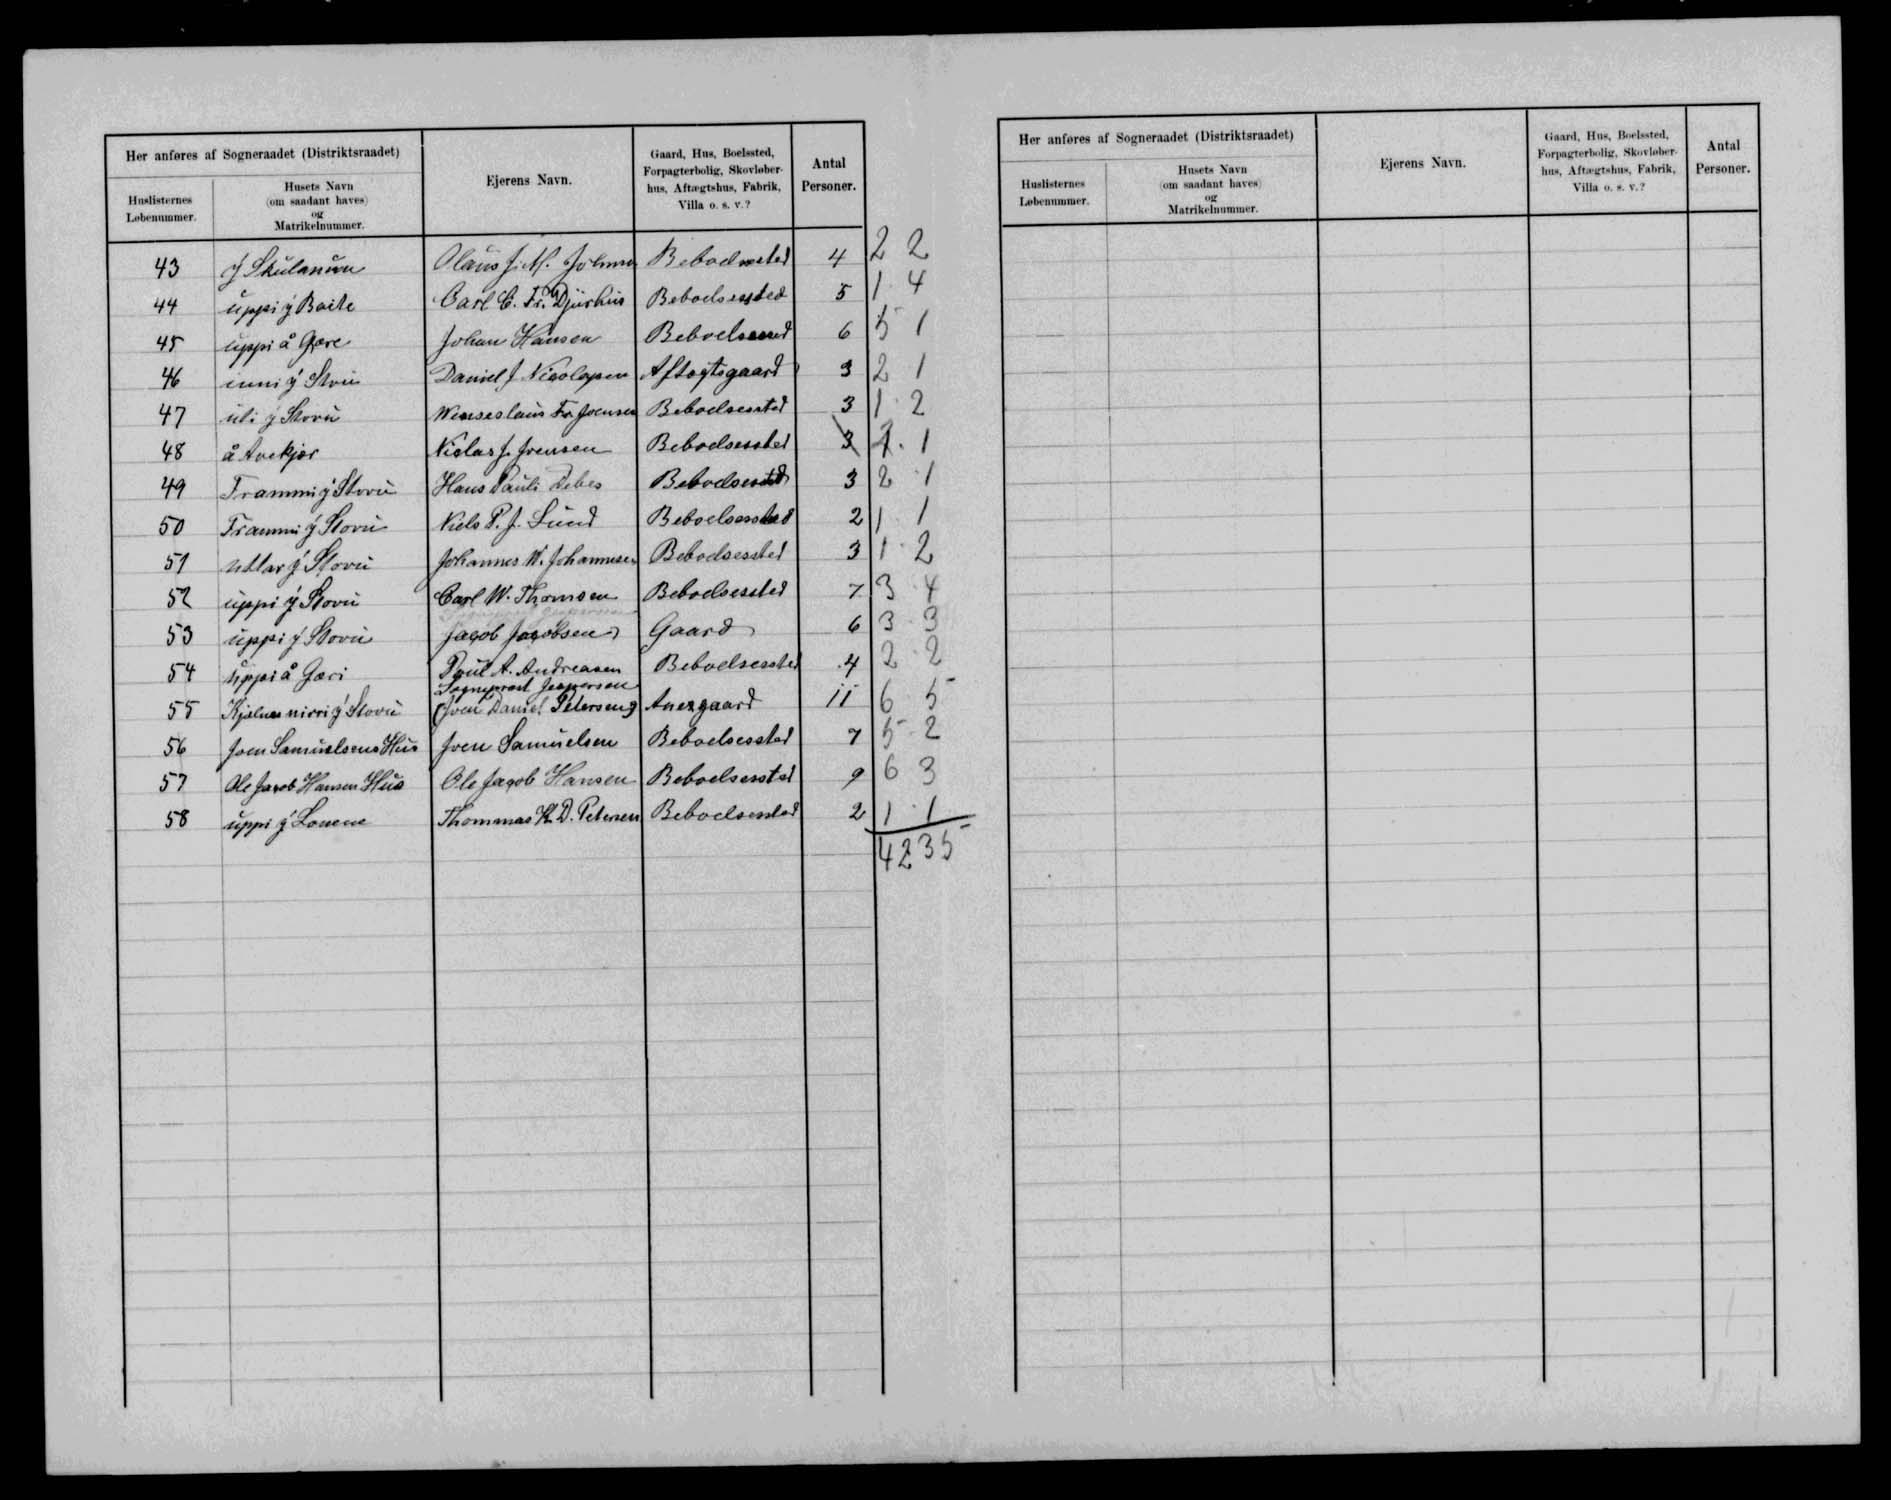 Her anføres af Sogneraadet (Distriktsraadet)
Huslisternes Løbenummer.
Husets Navn (om saadant haves) og Matrikelnummer.
Ejerens Navn.
Gaard, Hus, Boelssted, Forpagterbolig, Skovløber-hus, Aftægtshus, Fabrik, Villa o. s. v.?
Antal Personer.
43 ý Skulanum Olaus J. M. Johnsen Beboelsested 4 2 2
44 uppi ý Baite Carl C. Fr. Djurhus Beboelsessted 5 1 4
45 uppi å Gære Johan Hansen Beboelsessted 6 5 1
46 inni ý Stovu Daniel J Nicolajsen Aftægtsgaard 3 2 1
47 uti ý Stovu Wenseslaus Fr. Joensen Beboelsessted 3 1 2
48 å Niclas J. Joensen Beboelsessted 3 1
49 Frammi ý Stovu Hans Pauli Debes Beboelsessted 3 2 1
50 Frammi ý Stovu Niels P. J. Lund Beboelsessted 2 1 1
51 uttar ý Stovu Johannes W. Johannesen Beboelsessted 3 1 2
52 uppi ý Stovu Carl W. Thomsen Beboelsessted 7 3 4
53 uppi ý Stovu Jacob Jacobsen Gaard 6 3 3
54 uppi å Gæri Poul A. Andreasen Beboelsessted 4 2 2
55 Kjalnes nirri ý Stovu Sogneprest Jespersen (Joen Daniel Petersen) Anexgaard 11 6 5
56 Joen Samuelsens Hus Joen Samuelsen Beboelsessted 7 5 2
57 Ole Jacob Hansen Hus Ole Jacob Hansen Beboelsessted 9 6 3
58 uppi ý Lonene Thommas K. D. Petersen Beboelsessted 2 1 1
42 35
Her anføres af Sogneraadet (Distriktsraadet)
Huslisternes Løbenummer.
Husets Navn (om saadant haves) og Matrikelnummer.
Ejerens Navn.
Gaard, Hus, Boelssted, Forpagterbolig, Skovløber-hus, Aftægtshus, Fabrik, Villa o. s. v.?
Antal Personer.